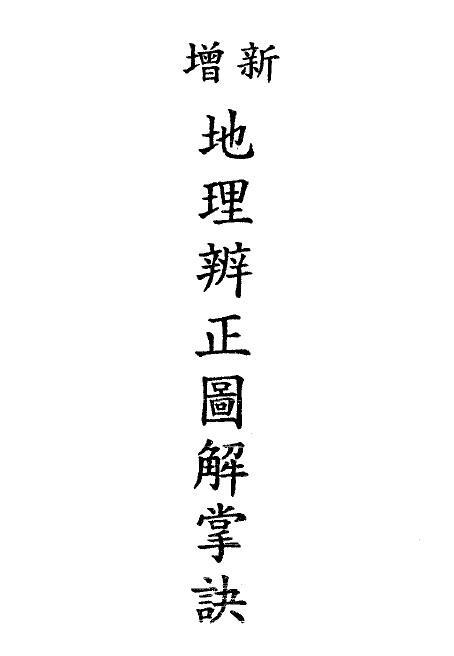 新增
地理辨正圖解掌訣